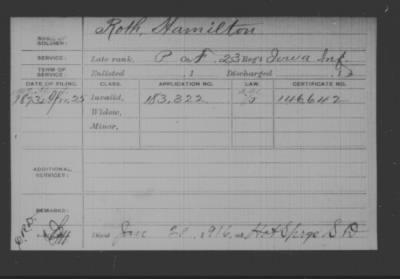 NAME OF SOLDIER: Roth, Hamilton
SERVICE: Late rank, P Co F. 23 Reg't Iowa Inf.
TERM OF SERVICE: Enlisted , 1 Discharged , 1
DATE OF FILING. CLASS. APPLICATION NO. LAW. CERTIFICATE NO.
1873 Invalid, 183,322 146,642
Widow,
Minor,
ADDITIONAL SERVICES:
REMARKS:
Died June 20 1916, at Hot Spgs S.D